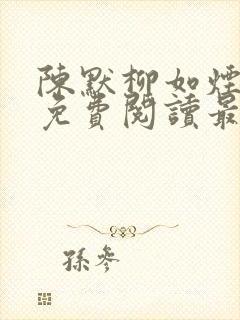 陳默柳如煙
免費閱讀最
孫參